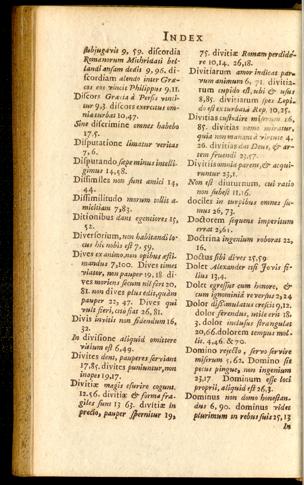 INDEX
subjugavit 9, 59. discordia
Romanorum Michridati bel-
landi ansam dedit 9, 96. di-
scordiam alendo inter Græ-
cos eos vincit Philippus 9.11.
Discors Græcia à Persis vinci-
tur 9,3. discors exercitus om-
nia turbat 10.47.
Sine discrimine omnes habebo
17.5.
Disputatione limatur veritas
7,6.
Disputando sæpe minus intelli-
gimus 14,58.
Dissimiles non sunt amici 14,
44.
Dissimilitudo morum tollit a-
micitiam 7,83.
Ditionibus dans egentiores 15,
52.
Diversorium, non habitandi lo-
cus hic nobis est 7. 59.
Dives ex animo, non opibus æsti-
mandus 7,100. Dives times
viator, non pauper 19, 18. di-
ves moriens secum nil feri 20,
81. non dives plus edit, quàm
pauper 22, 47. Dives qui
vult fieri, cito fiat 26, 81.
Divis invitis non fidendum 16,
32.
In divisione aliquid omittere
vitium est 6,49.
Divites dent, pauperes serviant
17,85. divites puniuntur, non
inopes 19,17.
Divitiæ magis esurire cogunt.
12.56. divitiæ & forma fra-
giles sunt 13 63. divitiæ in
precio, pauper spernitur 19,
75. divitiæ Romam perdidé-
re 10,14. 26,18.
Divitiarum amor indicat par-
vum animum 6, 71. divitia-
rum cupido est, ubi & usus
8,85. divitiarum spes Lepi-
do est ex turbata Rep. 10,25.
Divitias custodire miserum 16,
85. divitias nemo miratur,
quia non manant à virtute 4.
26. divitias dat Deus, & ar-
tem fruendi 23.57.
Divitiis omnia parent, & acqui-
runtur 23,1.
Non est diuturnum, cui ratio
non subest 11.16.
dociles in turpibus omnes su-
mus 26,73.
Doctorem sequens imperitum
errat 2,61.
Doctrina ingenium roborat 22,
16.
Doctus sibi dives 25.59
Dolet Alexander esse Jovis fi-
lius 13,4.
Dolet egressus cum honore, &
cum ignominiâ reversus 2,24
Dolor dissimulatus crescit 9,12.
dolor ferendus, mitie erit 18,
3. dolor inclusus strangulat
20,66. dolorem tempus mol-
lit. 4,46 & 70.
Domino rejecto, servo servire
miserum 5, 62. Domino sit
pecus pingue, non ingenium
23,17 Dominum esse loci
proprii, aliquid est 26,3.
Dominus non domo honestan-
dus 6, 90. dominus videt
plurimum in rebus suis 25, 13
In